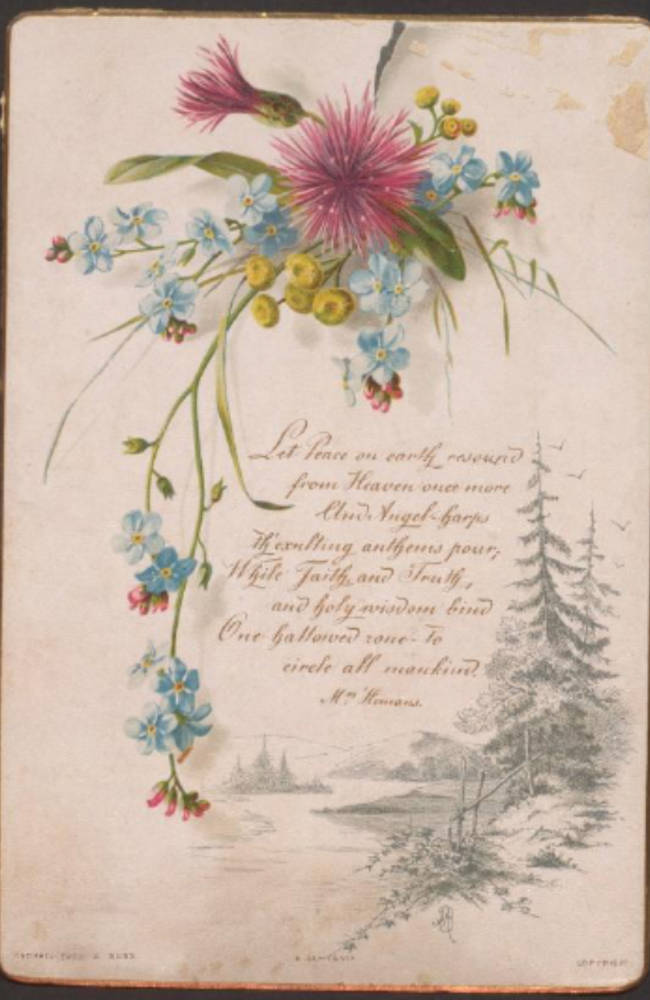 Let Peace on earth resound
from Heaven once more
And Angel-harps
th' exulting anthems pour;
While Faith, and Truth,
and holy wisdom bind
One hallowed zone - to
circle all mankind.
Mrs Hemans.
COPYRIGHT